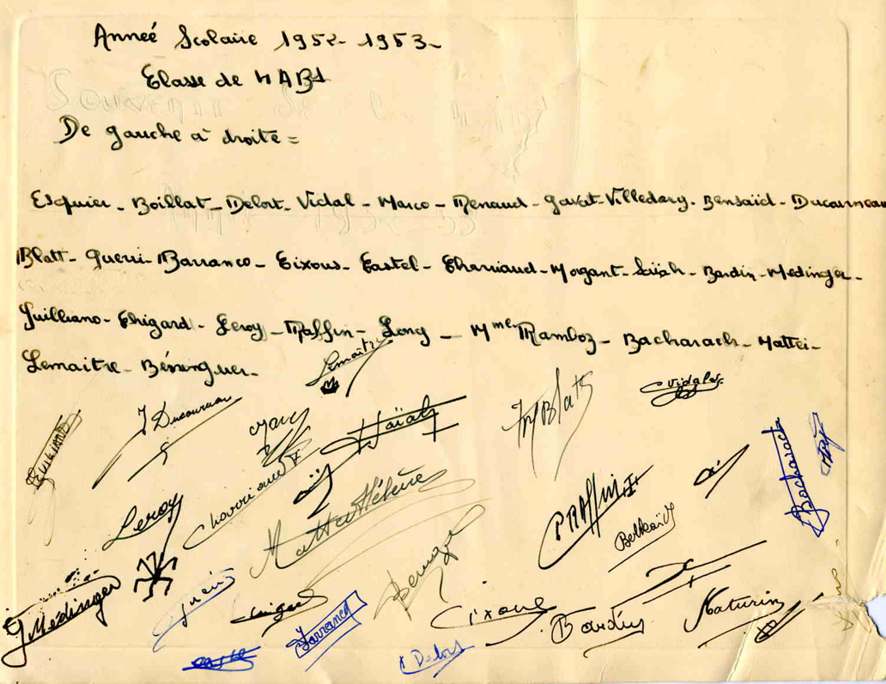 Anneé Scolaire 1952-1953-
Classe de 4AB1
De gauche à droite =
Esquier - Boillat - Delort - Vidal - Marco - Renaud - Gavat - Villedary - Bensaïd - Ducourneau
Blatt - Guerri - Barranco - Cixous - Castel - Charriaud - Morgant - Saïah - Bardin - Medinger -
Guilliano - Chigard - Leroy - Raffin - Long - Mme Ramboz - Bacharach - Mattei -
Lemaitre - Bérenguer -
Lemaitre
J Ducourneau
Vidal
Blatt
GUILIANO
Charriaud
Bacharach
Leroy
Mattei Hélène
P RAffin
Belkaïd
J Medinger
Guerri
Cixous
Bardin
Naturin
Barranco
Delort